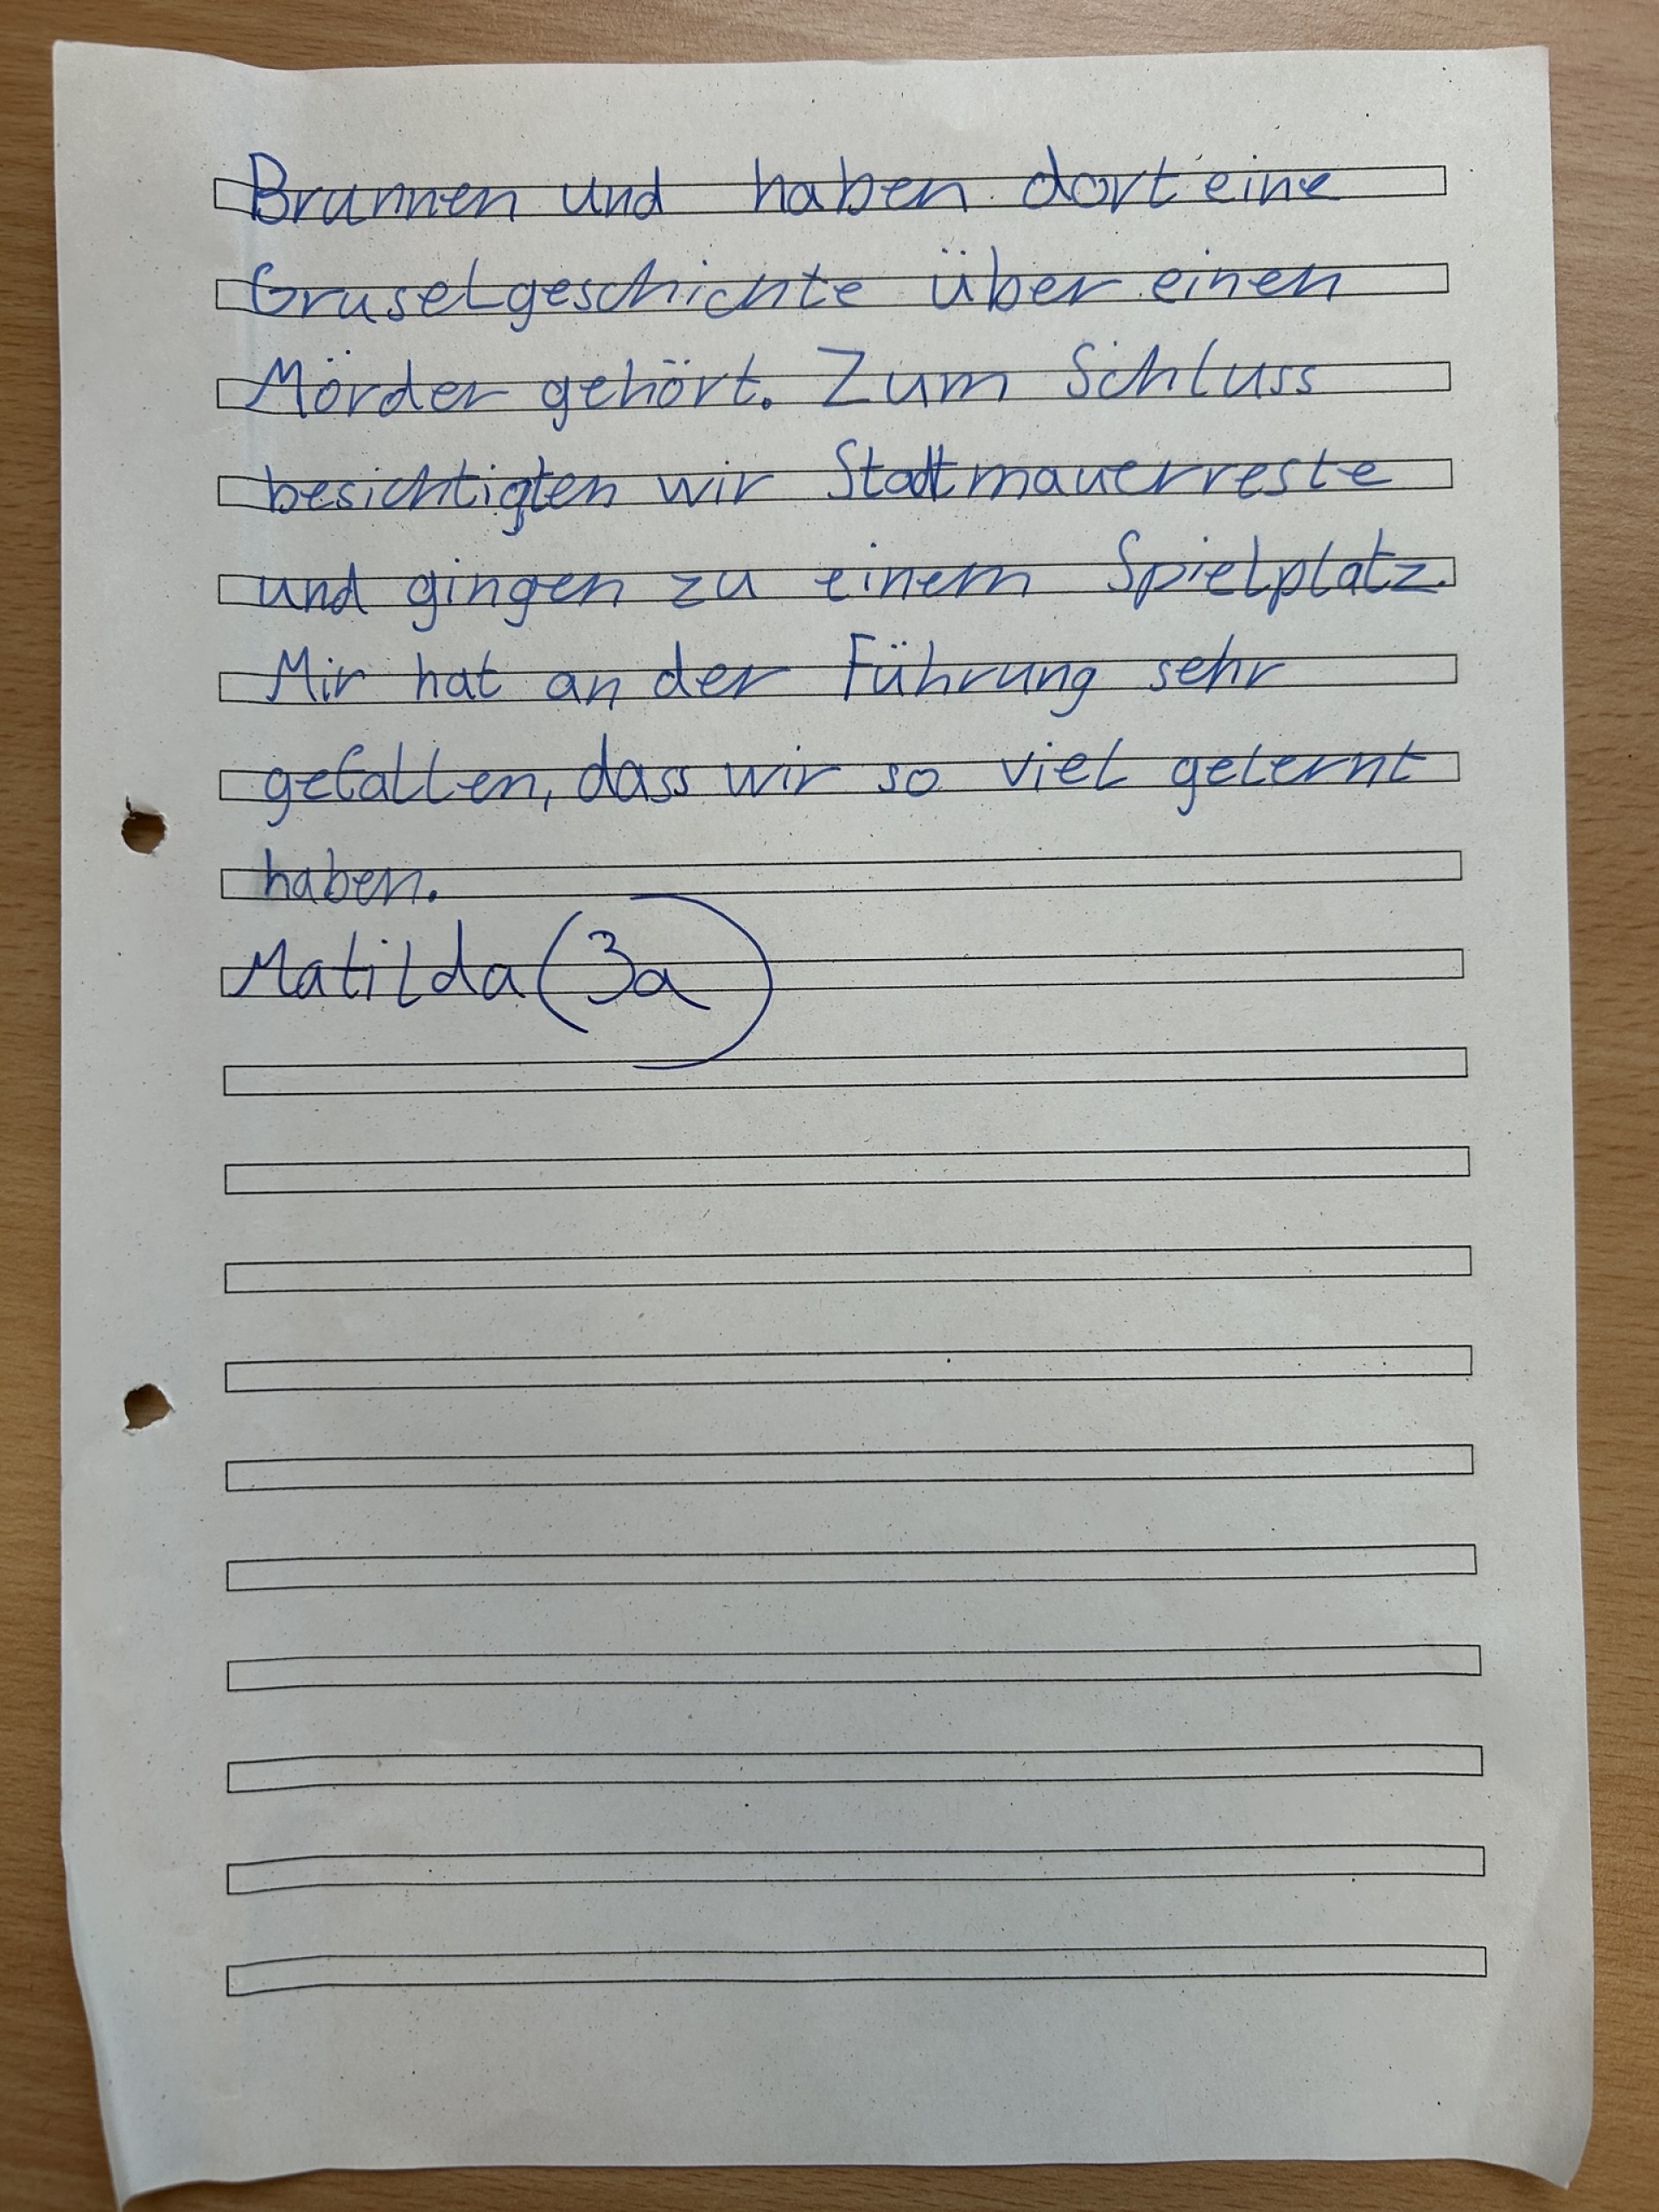 Brunnen und haben dort eine
Gruselgeschichte über einen
Mörder gehört. Zum Schluss
besichtigten wir Stadtmauerreste
und gingen zu einem Spielplatz.
Mir hat an der Führung sehr
gefallen, dass wir so viel gelernt
haben.
Matilda (3a)